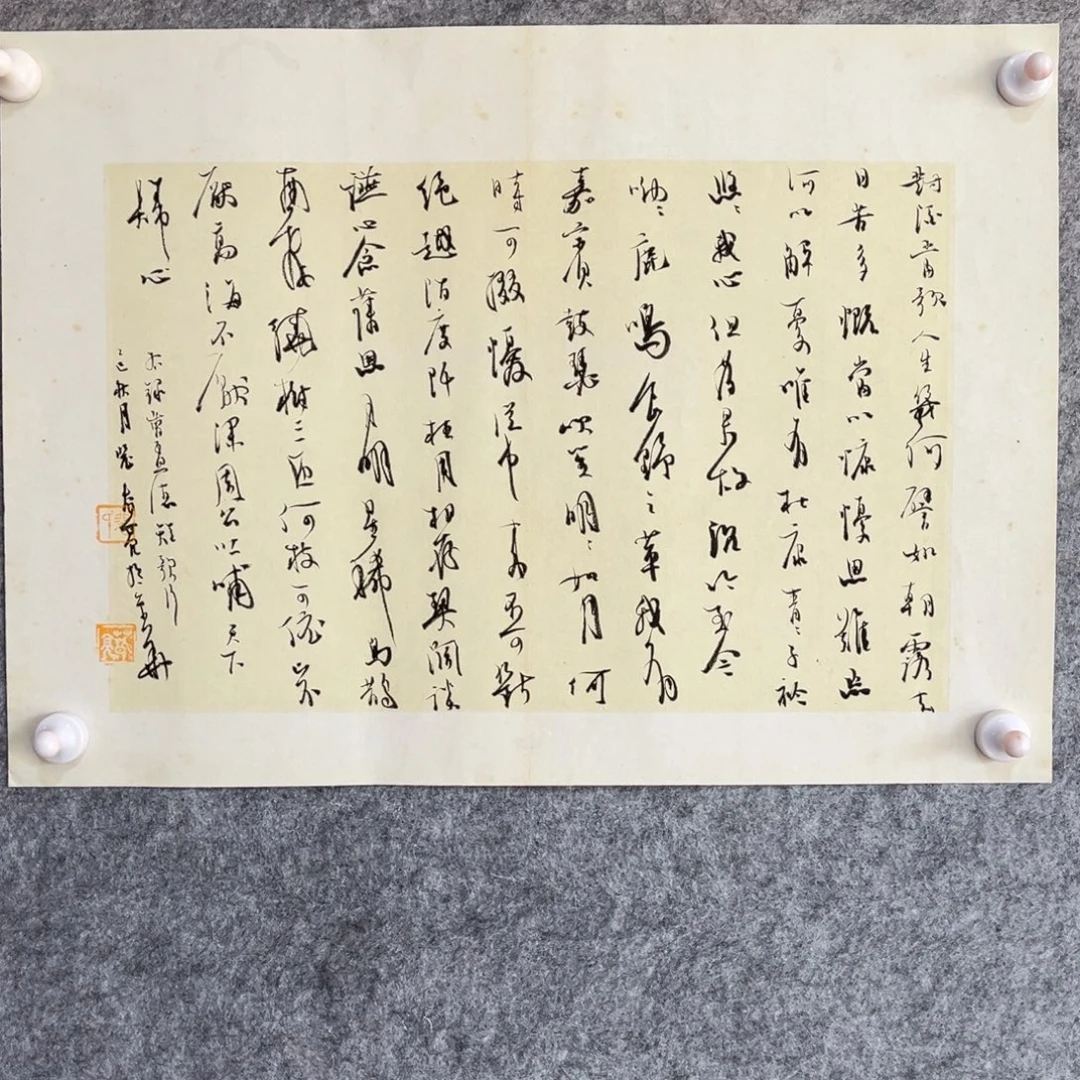 對酒當歌人生幾何譬如朝露去
日苦多慨當以慷憂思難忘
何以解憂唯有杜康青青子衿
悠悠我心但為君故沉吟至今
呦呦鹿鳴食野之苹我有
嘉賓鼓瑟吹笙明明如月何
時可掇憂從中來不可斷
絕越陌度阡枉用相存契闊談
讌心念舊恩月明星稀烏鵲
南飛繞樹三匝何枝可依山不
厭高海不厭深周公吐哺天下
歸心
右錄曹孟德短歌行